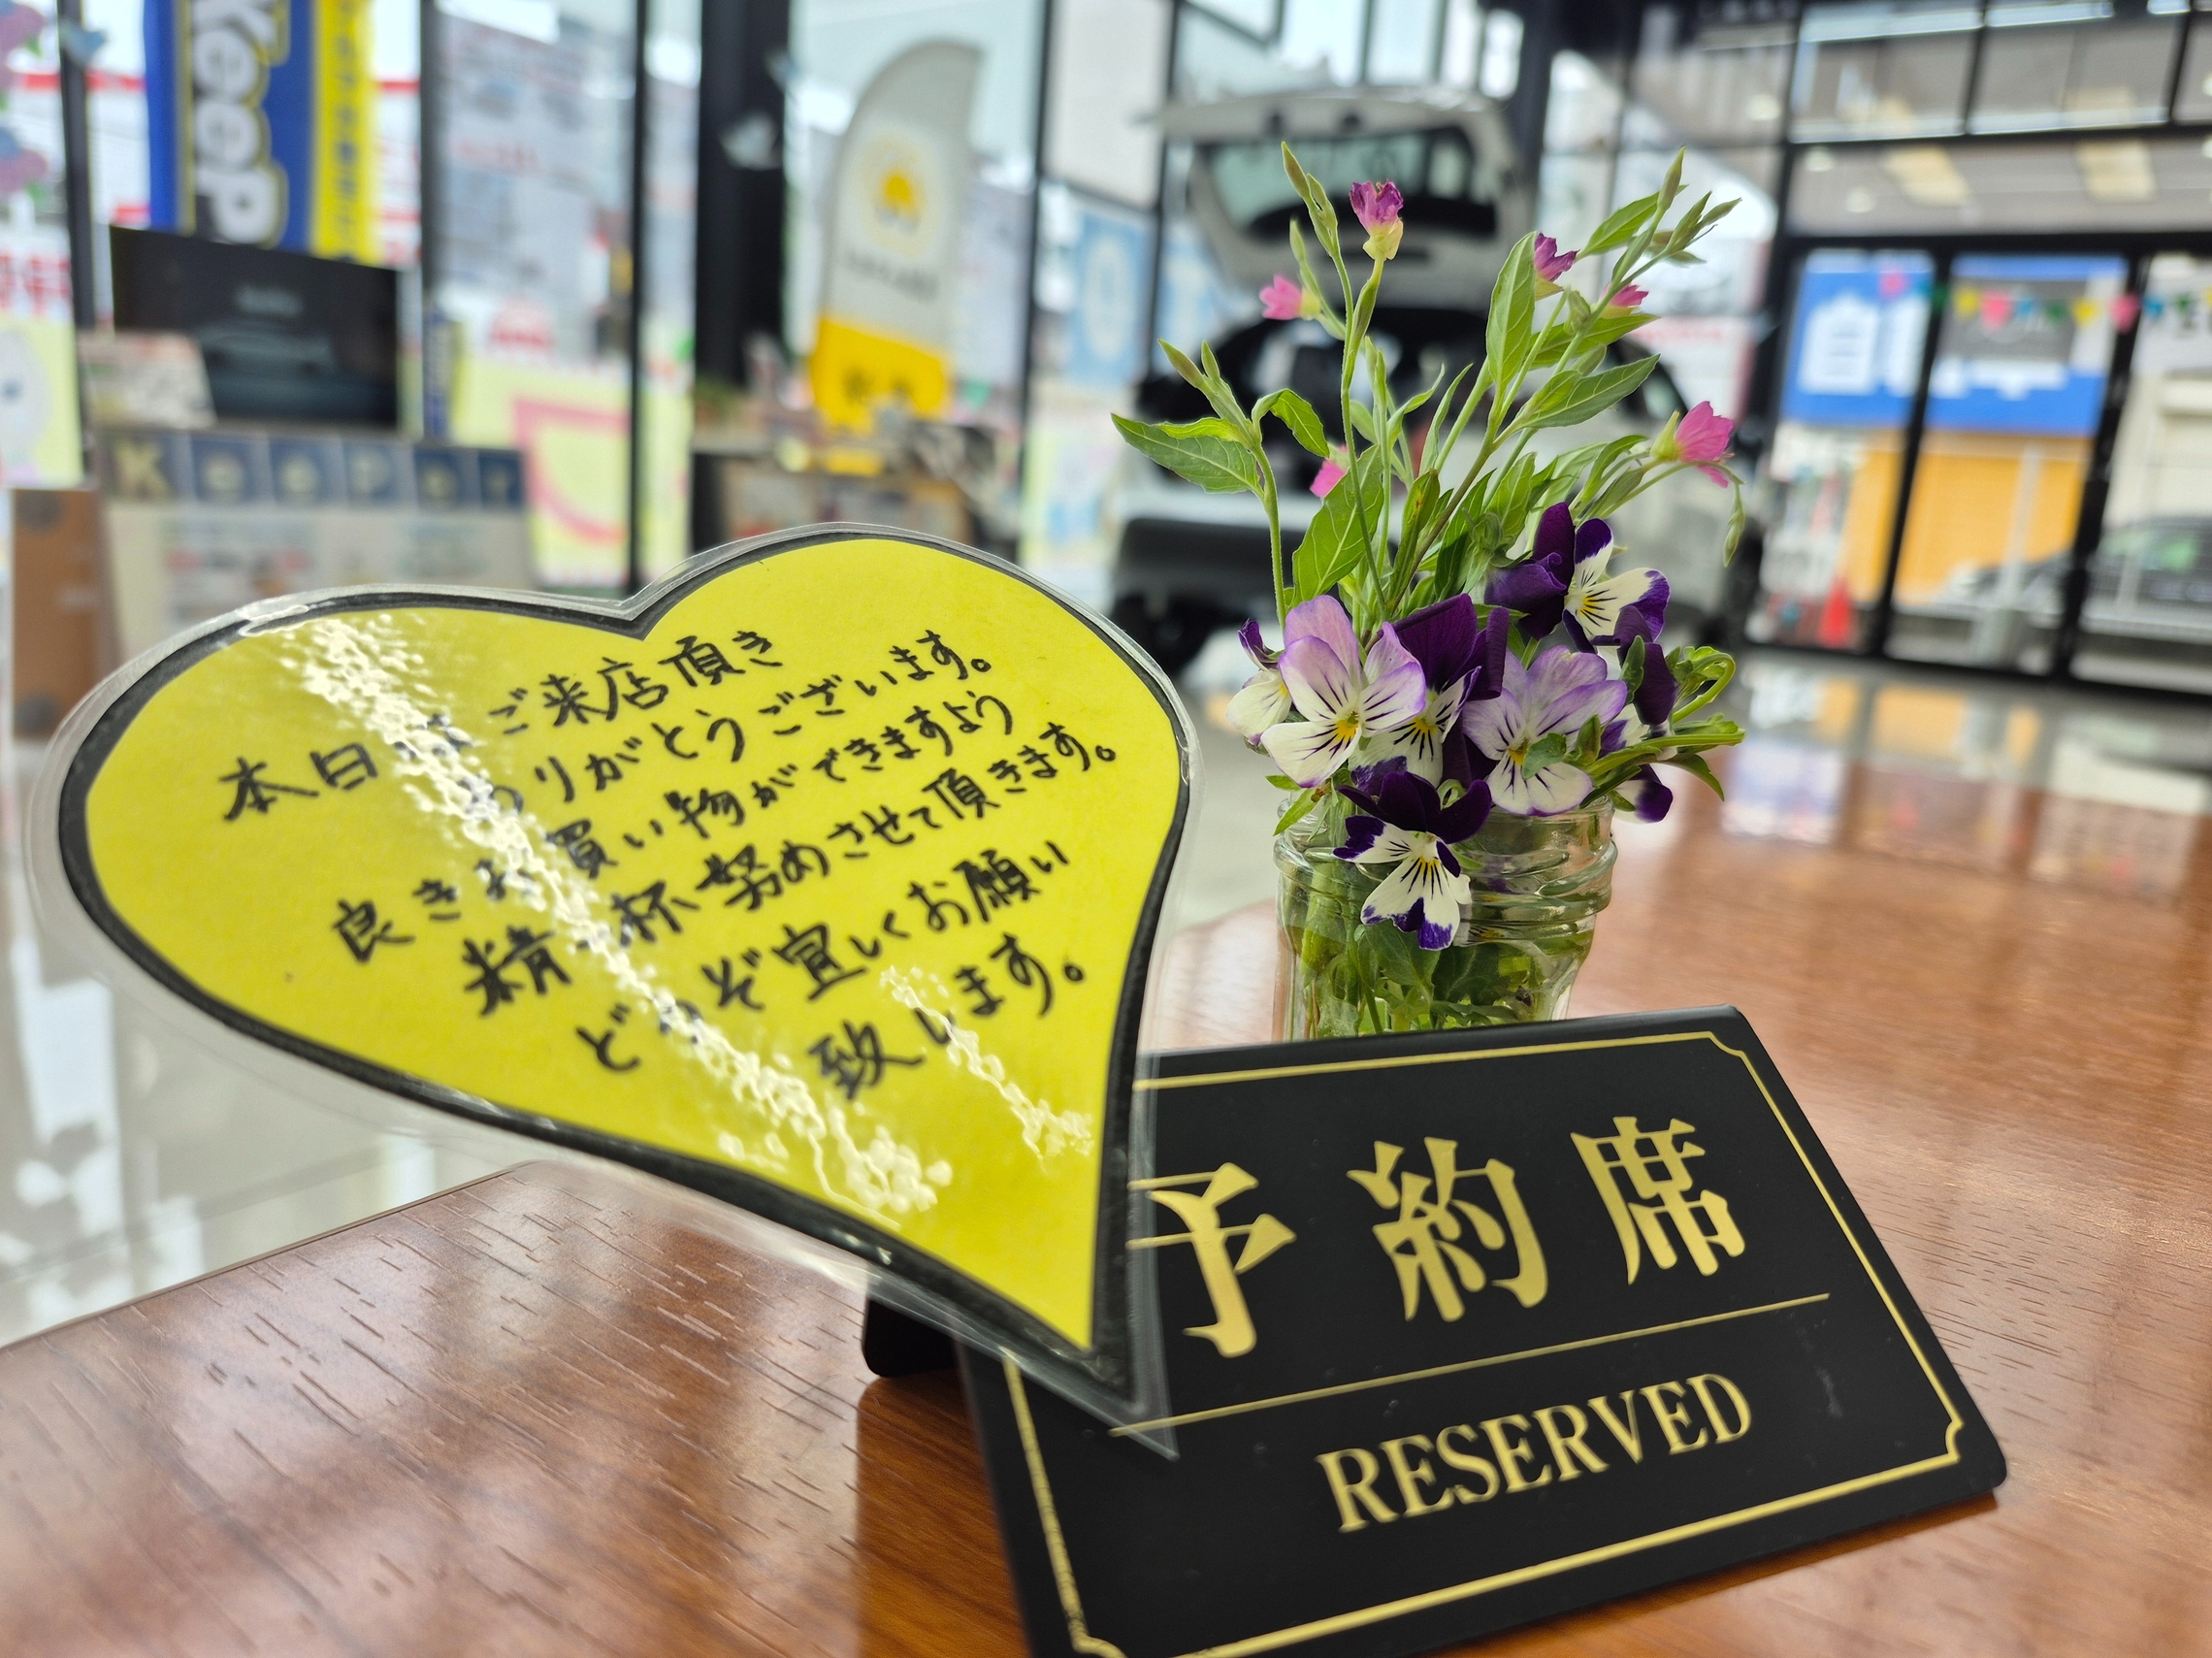 KeeP
KeePer
本日はご来店頂き
ありがとうございます。
良きお買い物ができますよう
精一杯努めさせて頂きます。
どうぞ宜しくお願い
致します。
予約席
RESERVED